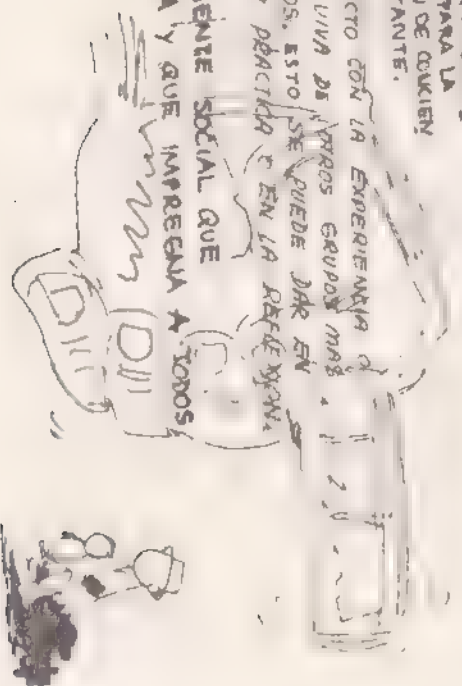 PARA LA
DE
TANTE.
CTO CON LA EXPERIENCIA
VIVA DE OTROS GRUPOS MÁS
OS. ESTO SE PUEDE DAR EN
PRACTICA O EN LA REFLEXION.
ENTE SOCIAL QUE
A Y QUE IMPREGNA A TODOS